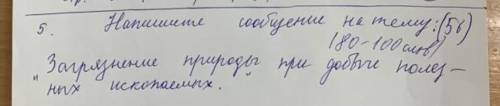 5. Напишите сообщение на тему: (5б)
(80-100 слов)
"Загрязнение природы при добыче полез-
ных ископаемых."